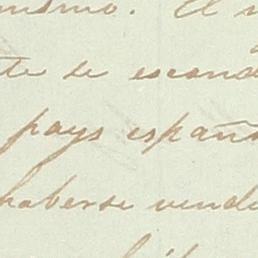 mismo. El
te de escand
pays españ
haberse vend